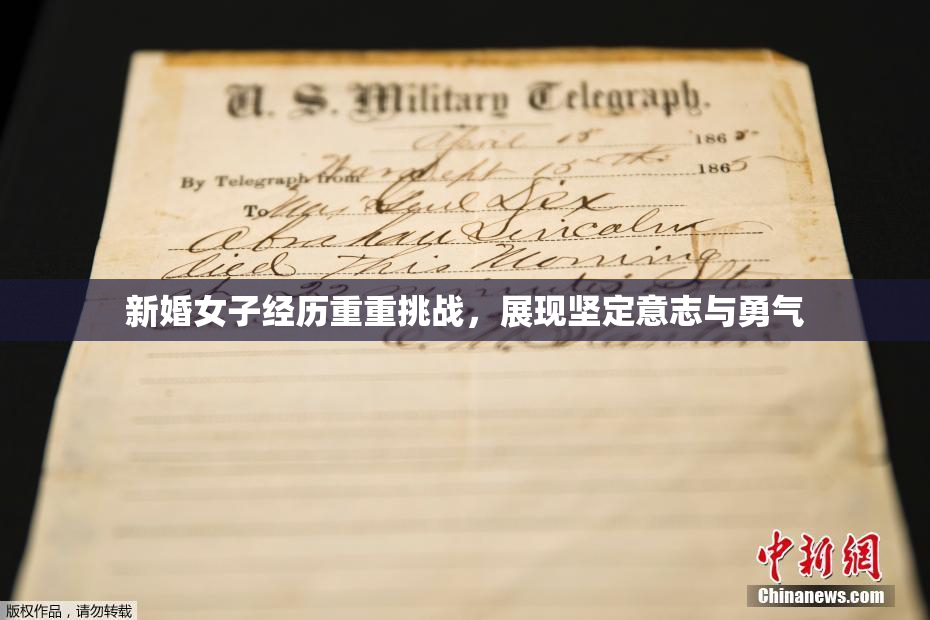 U. S. Military Telegraph.
April 15 1865
By Telegraph from War Dept 15th 1865
To Maj Genl Dix
Abraham Lincoln
died This Morning
at 22 minutes after
新婚女子经历重重挑战，展现坚定意志与勇气
E. M. Stanton
中新網
Chinanews.com
版权作品，请勿转载